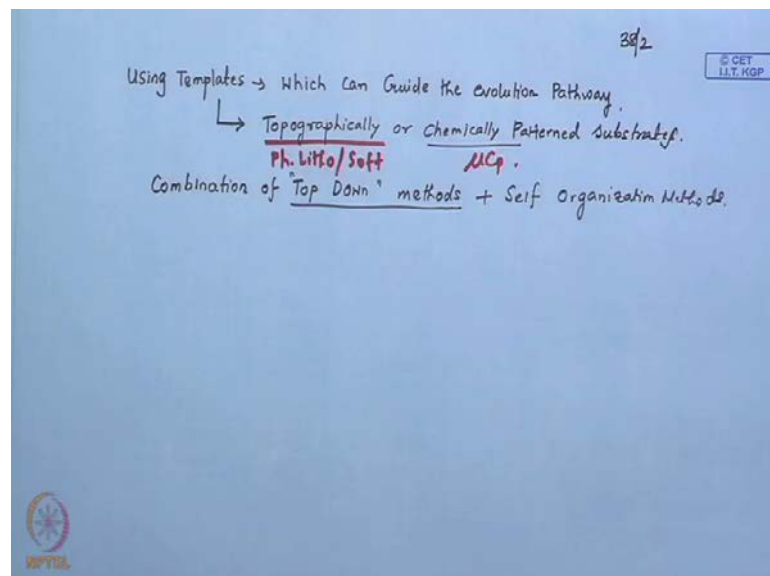 38/2
© CET
I.I.T. KGP
Using Templates → Which Can Guide the evolution Pathway.
↳ Topographically or Chemically Patterned Substrates.
Ph. Litho/Soft μCP.
Combination of "Top Down" methods + Self Organization Methods.
NPTEL